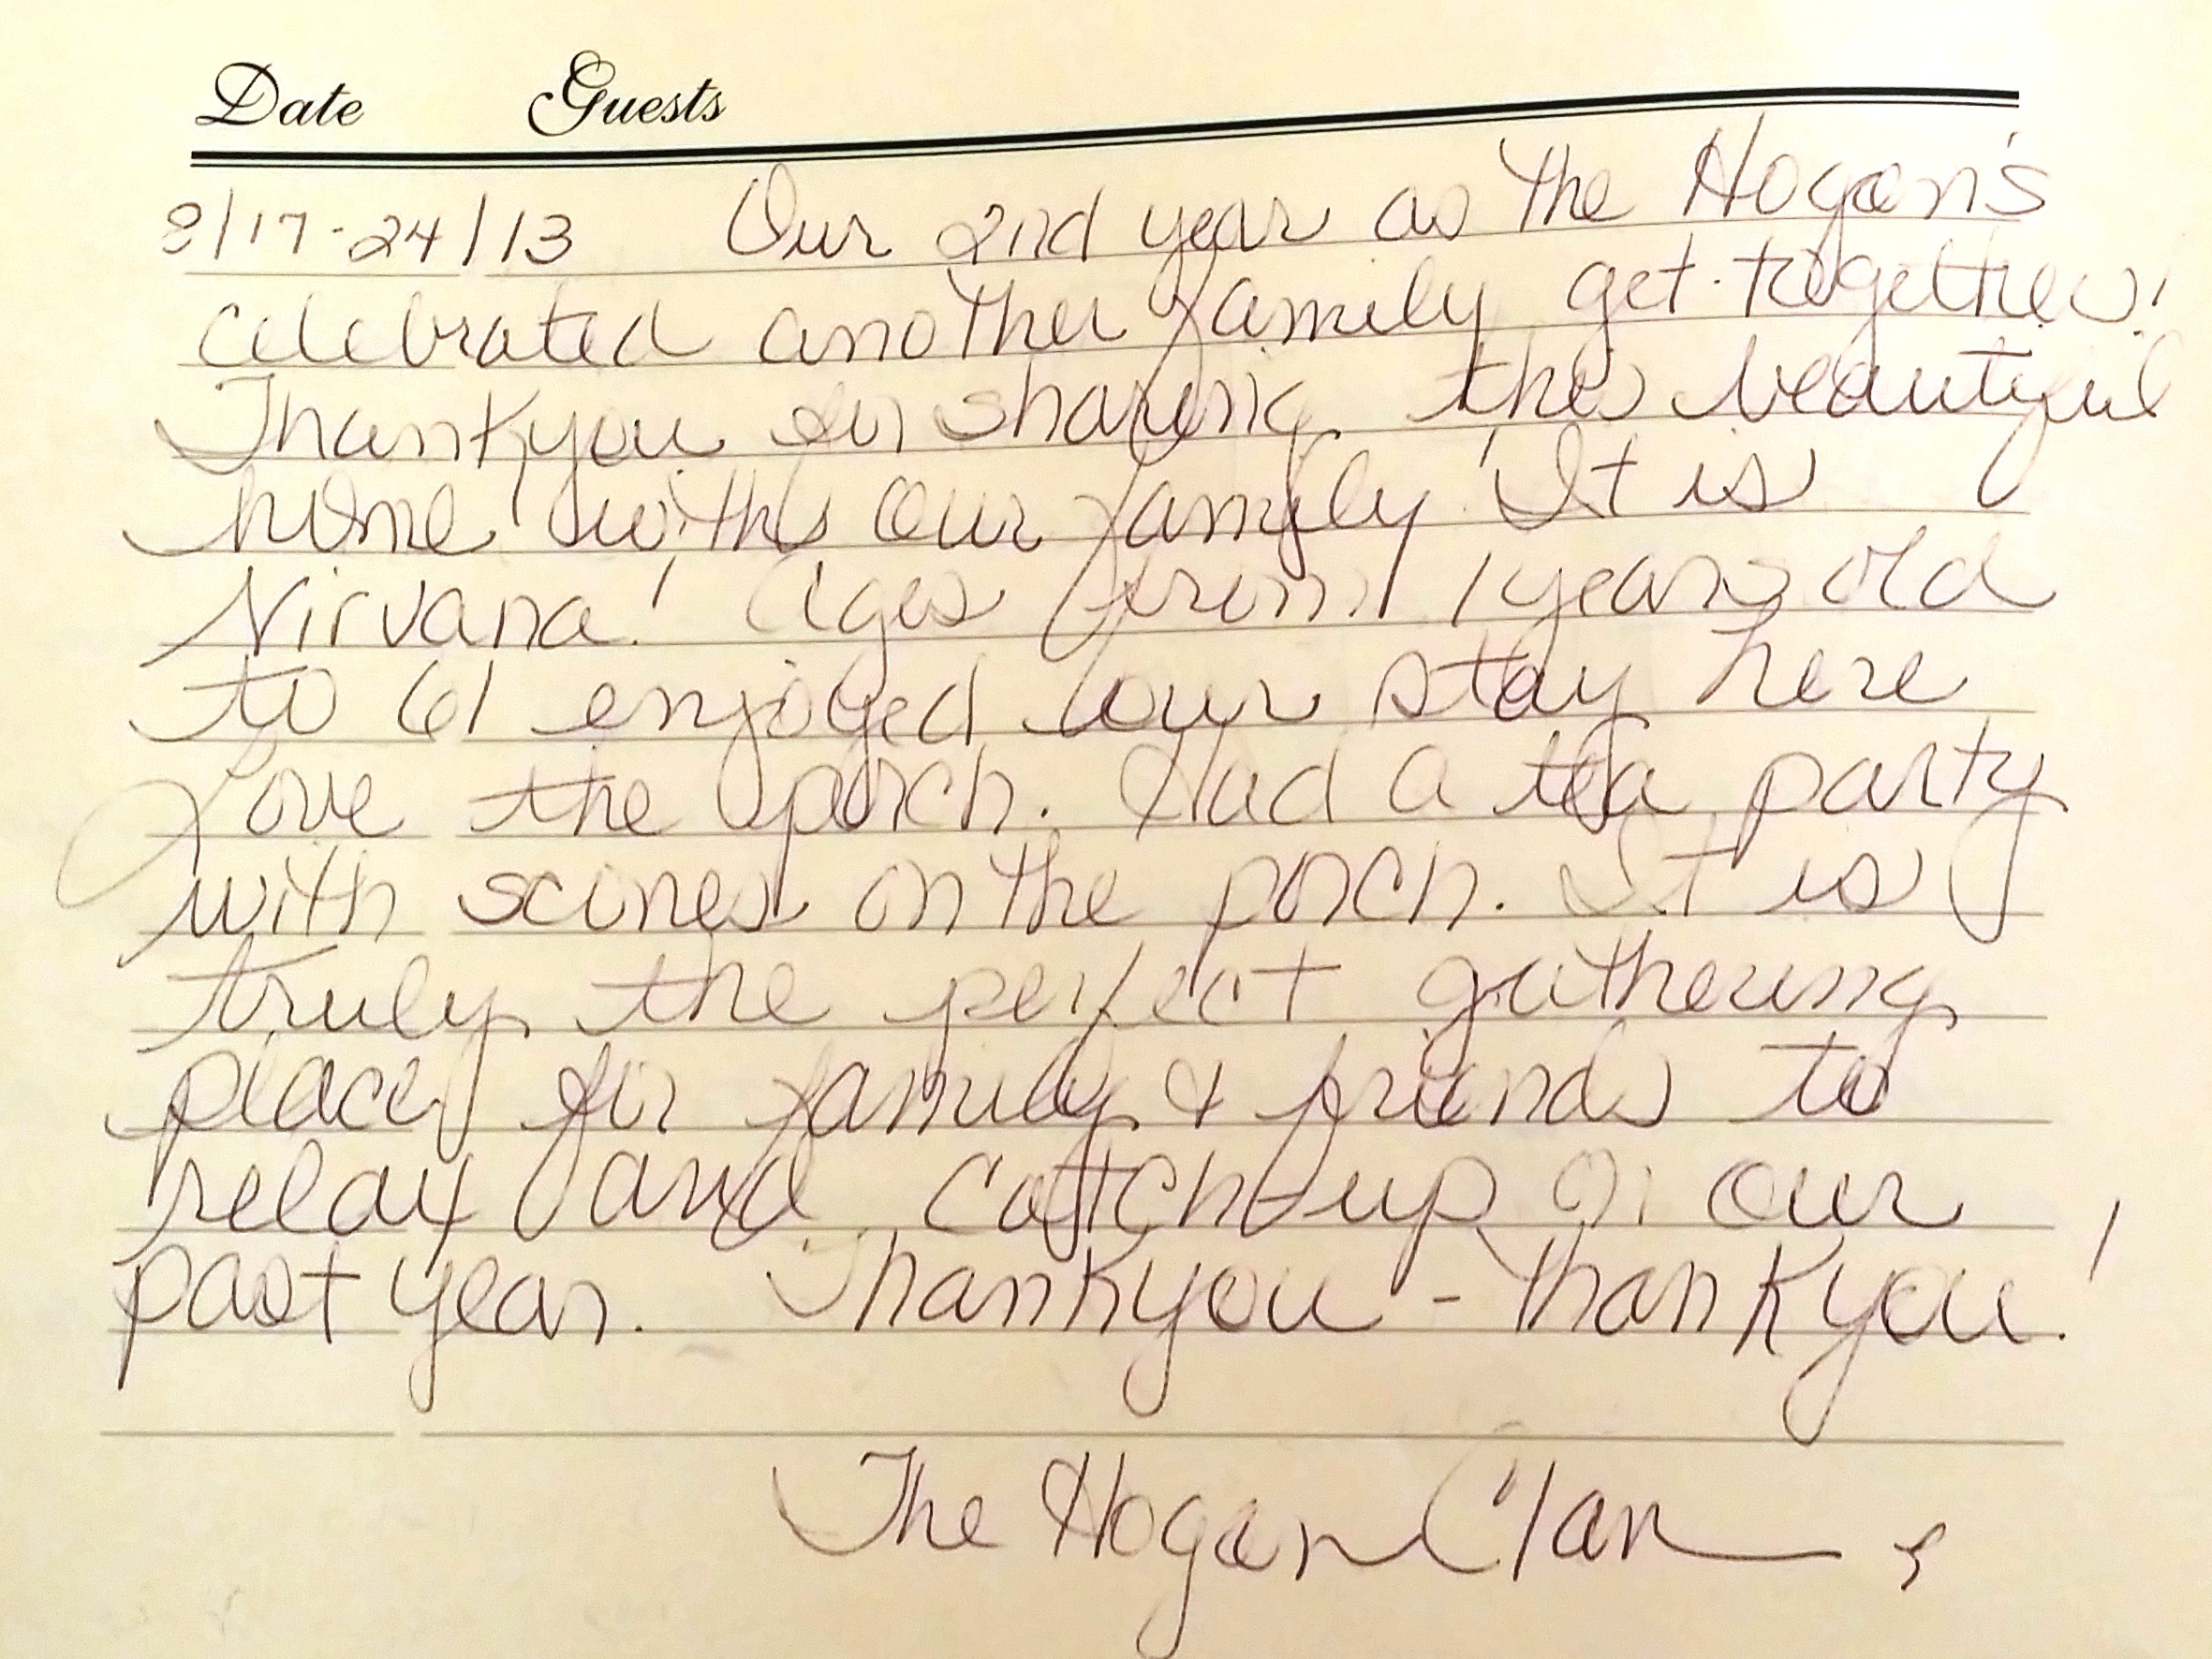 Date Guests
8/17-24/13 Our 2nd year as the Hogan's
celebrated another family get-together!
Thankyou for sharing this beautiful
home with our family! It is
Nirvana! Ages from 1 years old
to 61 enjoyed our stay here
Love the porch. Had a tea party
with scones on the porch. It is
truly the perfect gathering
place for family & friends to
relax and catch-up on our
past year. Thankyou - Thankyou!
The Hogan Clan